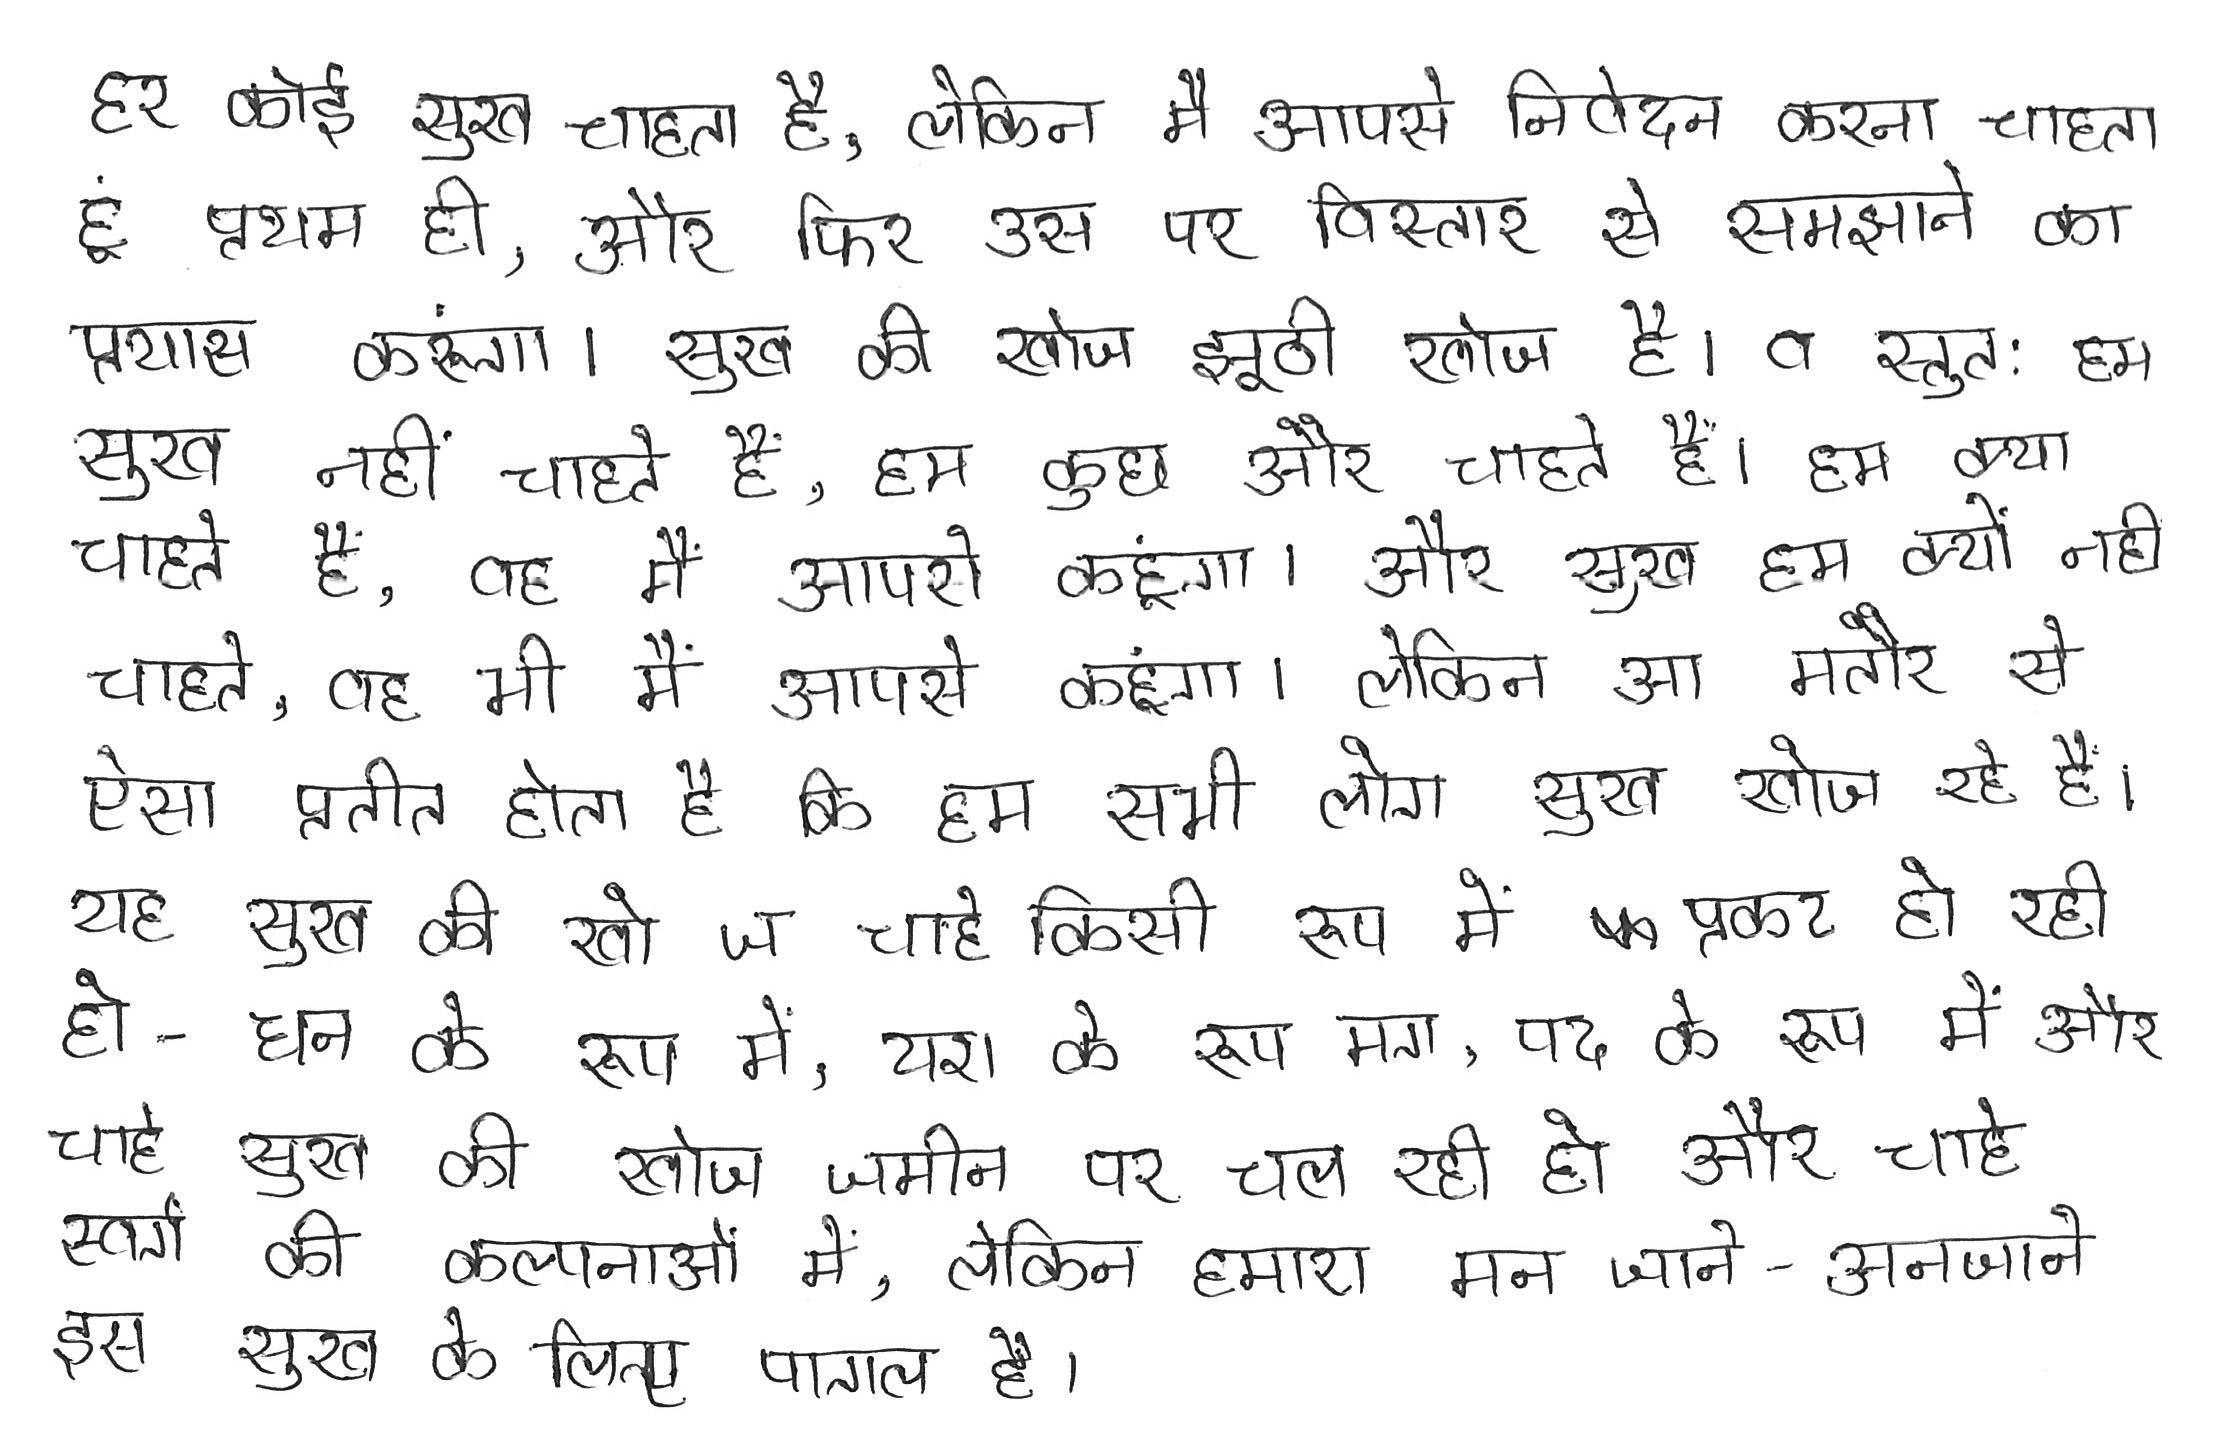 हर कोई सुख चाहता है, लेकिन मै आपसे निवेदन करना चाहता
हूं प्रथम ही, और फिर उस पर विस्तार से समझाने का
प्रयास करूंगा। सुख की खोज झूठी खोज है। व स्तुत: हम
सुख नहीं चाहते हैं, हम कुछ और चाहते हैं। हम क्या
चाहते हैं, वह मैं आपसे कहूंगा। और सुख हम क्यों नही
चाहते, वह भी मैं आपसे कहूंगा। लेकिन आ मतौर से
ऐसा प्रतीत होता है कि हम सभी लोग सुख खोज रहे हैं।
यह सुख की खो ज चाहे किसी रूप में प्रकट हो रही
हो - धन के रूप में, यश के रूप मग, पद के रूप में और
चाहे सुख की खोज जमीन पर चल रही हो और चाहे
स्वर्ग की कल्पनाओं में, लेकिन हमारा मन जाने - अनजाने
इस सुख के लिए पागल है।